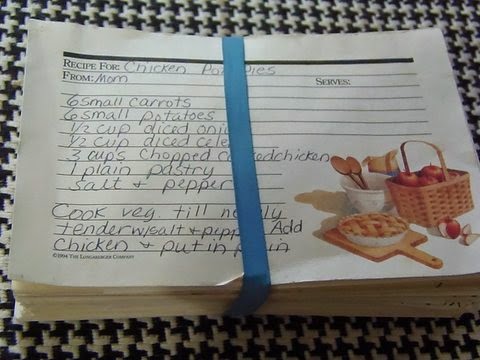 RECIPE FOR: Chicken Pot Pies
FROM: Mom SERVES:
6 small carrots
6 small potatoes
1/2 cup diced
1/2 cup diced
3 cups chopped chicken
1 plain pastry
salt + pepper
Cook veg. till
tender w/salt + Add
Chicken + put in
©1994 THE LONGABERGER COMPANY